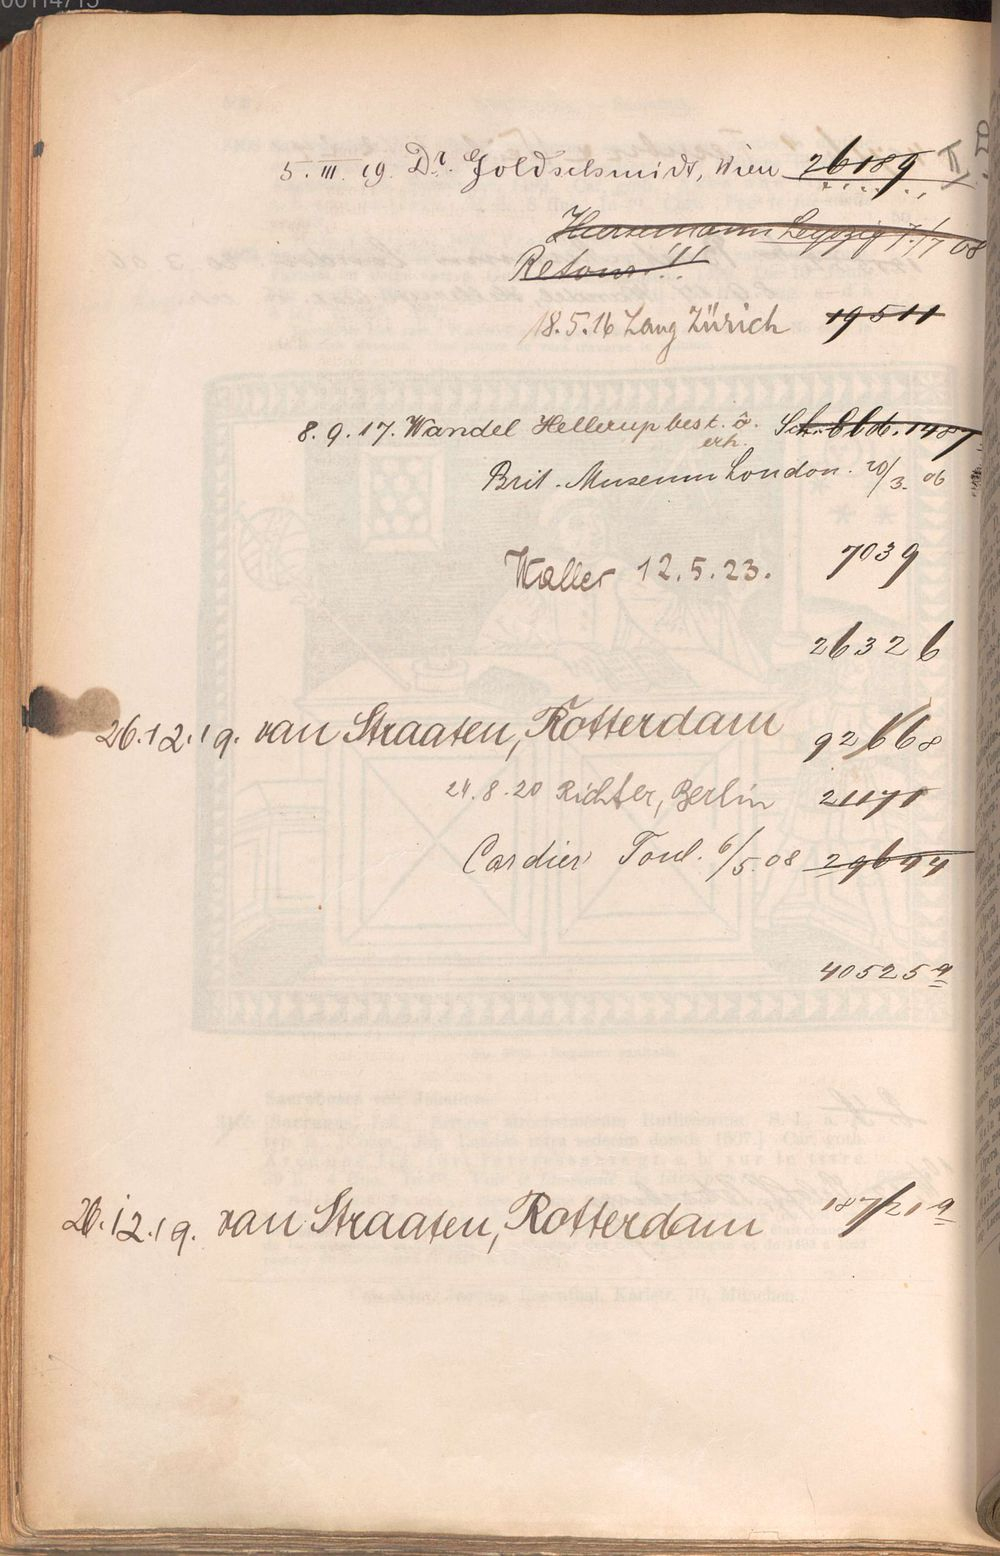 5. III. 19. Dr. Goldschmidt, Wien 26189 II
Hiersemann Leipzig 7./7 08
Retour!!
18.5.16 Lang Zürich 19511
8.9.17. Wandel Hellerup best. 1487
erh.
Brit. Museum London. 20/3. 06
Waller 12.5.23. 7039
26326
26.12.19. van Straaten, Rotterdam 92668
24.8.20 Richter, Berlin 21171
Cardier Toul. 6/5.08 29644
405259
20.12.19. van Straaten, Rotterdam 187/219